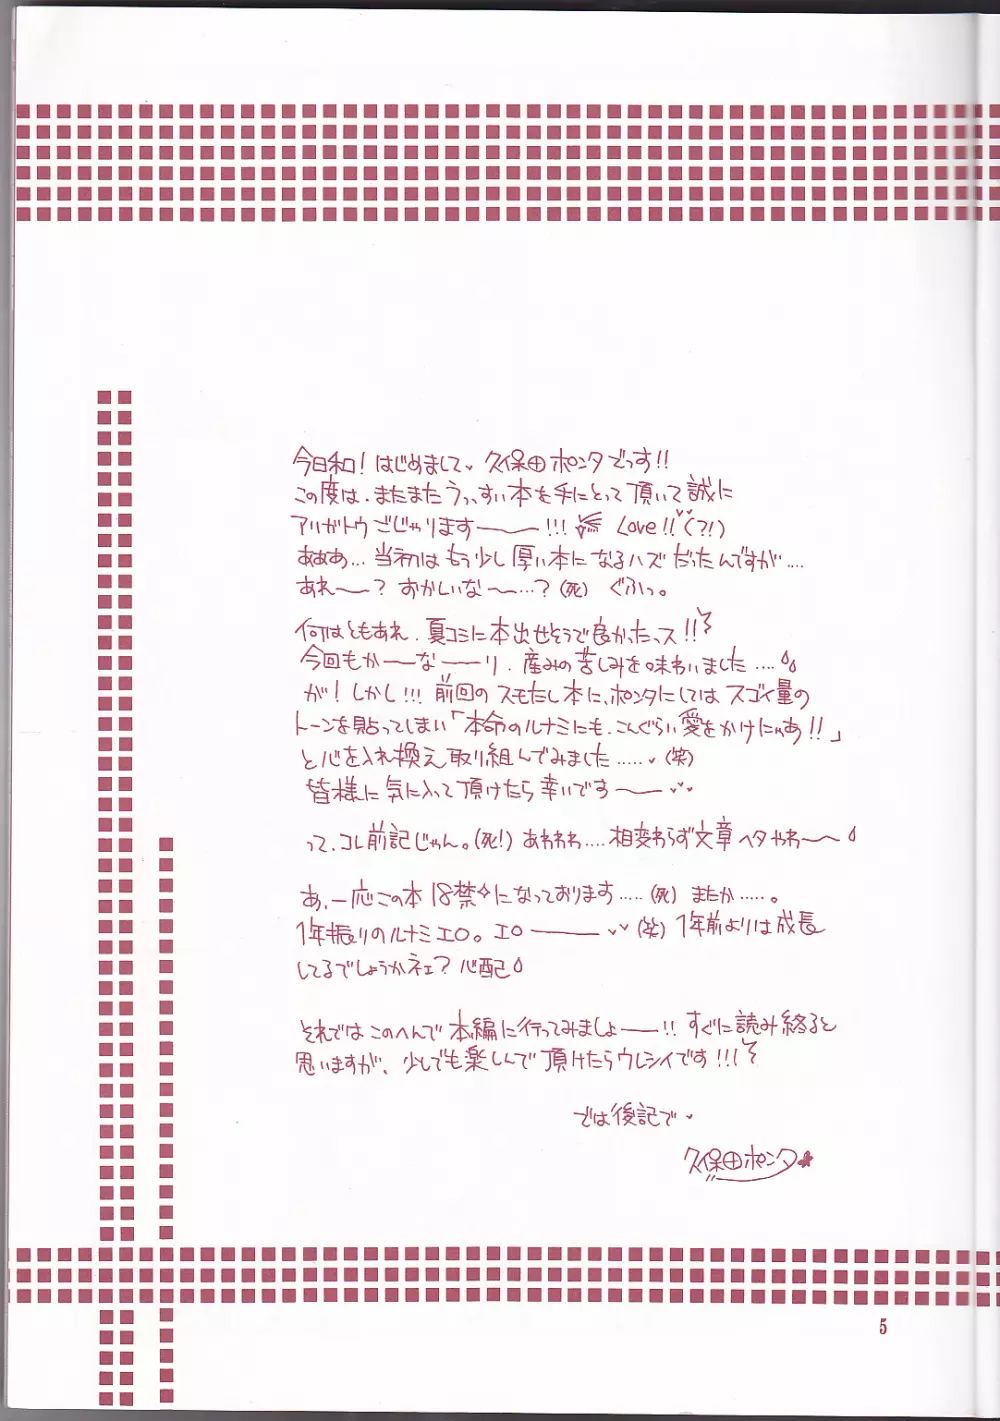 今日和！はじめまして♥ 久保田ポンタでっす!!
この度は、またまたうっすい本を手にとって頂いて誠に
アリガトウごじゃりますー!!! Love!!(?!)
あああ…当初はもう少し厚い本になるハズだったんですが….
あれー？おかしいなー…？(死) ぐふっ。
何はともあれ、夏コミに本出せそうで良かったっス!!
今回もかーなーり、産みの苦しみを味わいました….
が！しかし!!! 前回のスモたし本に、ポンタにしてはスゴイ量の
トーンを貼ってしまい「本命のルナミにも、こんぐらい愛をかけにゃあ!!」
と心を入れ換え取り組んでみました…..♥(笑)
皆様に気に入って頂けたら幸いですー♥♥
って、コレ前記じゃん。(死!) あわわわ….相変わらず文章ヘタやわー
あ、一応この本18禁になっております…..(死) またか…..。
1年振りのルナミエロ。エロー♥♥(笑) 1年前よりは成長
してるでしょうかネェ？心配
それではこのへんで本編に行ってみましょー!! すぐに読み終ると
思いますが、少しでも楽しんで頂けたらウレシイです!!!
では後記で♥
久保田ポンタ
5